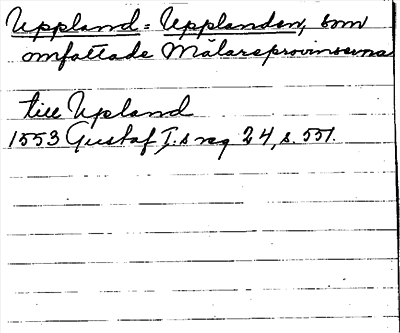 Uppland = Upplanden, som
omfattade Mälareprovinserna
till Upland
1553 Gustaf I.s reg 24, s. 551.